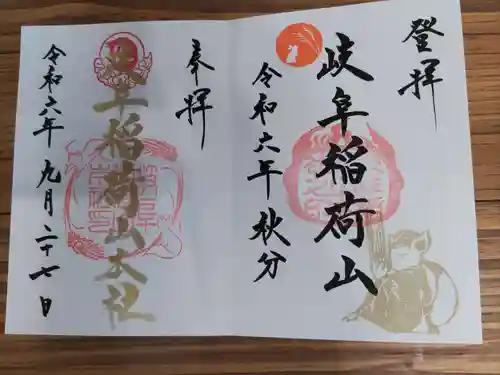 登拝
岐阜稲荷山
令和六年秋分
奉拝
岐阜稲荷山本社
令和六年九月二十七日